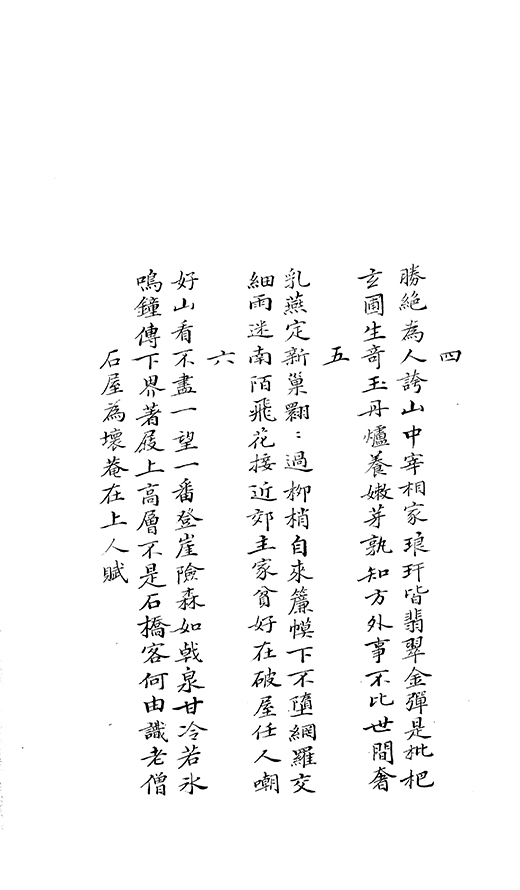 四
勝絶為人誇山中宰相家琅玕皆翡翠金彈是枇杷
玄圃生奇玉丹爐養嫩芽孰知方外事不比世間奢
五
乳燕定新巢翾〻過柳梢自來簾幙下不墮網羅交
細雨迷南陌飛花接近郊主家貧好在破屋任人嘲
六
好山看不盡一望一番登崖險森如戟泉甘冷若氷
鳴鐘傳下界著屐上高層不是石橋客何由識老僧
石屋為壞菴在上人賦